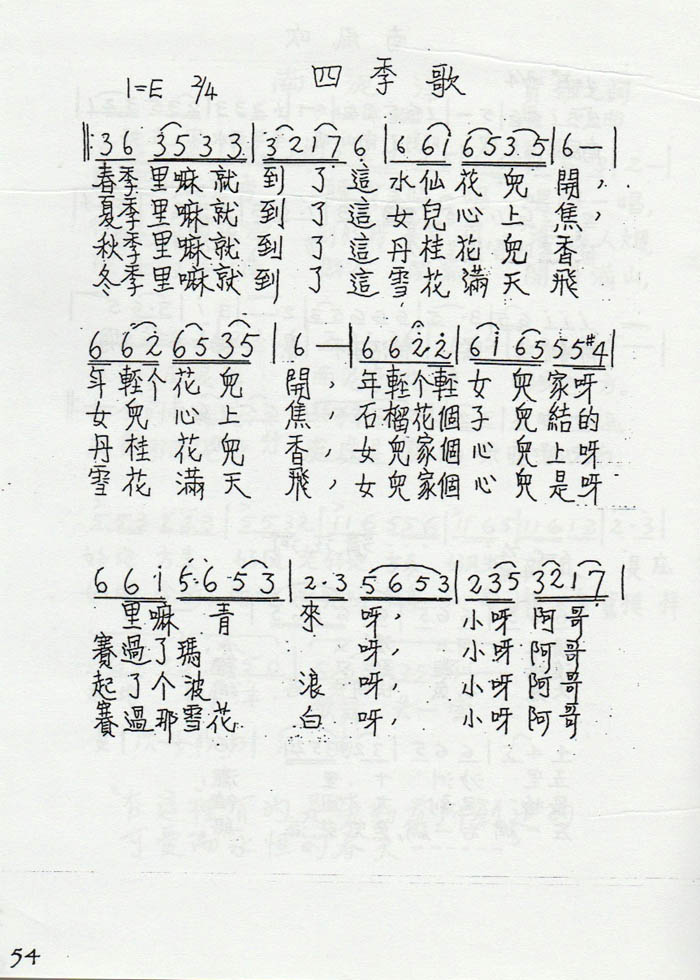 四季歌
1=E 2/4
‖:3 6 3 5 3 3|3 2 1 7 6|6 6 1 6 5 3 5|6 —|
春季里嘛就到了這水仙花兒開,
夏季里嘛就到了這女兒心上焦,
秋季里嘛就到了這丹桂花兒香
冬季里嘛就到了這雪花滿天飛
6 6 2 6 5 3 5|6 —|6 6 2·2|6 i 6 5 5 5 #4|
年輕个花兒開,年輕个輕女兒家呀
女兒心上焦,石榴花個子兒結的
丹桂花兒香,女兒家個心兒上呀
雪花滿天飛,女兒家個心兒是呀
6 6 i 5·6·5 3|2·3 5 6 5 3|2 3 5 3 2 1 7|
里嘛青來呀,小呀阿哥
賽過了瑪呀,小呀阿哥
起了个波浪呀,小呀阿哥
賽過那雪花白呀,小呀阿哥
54